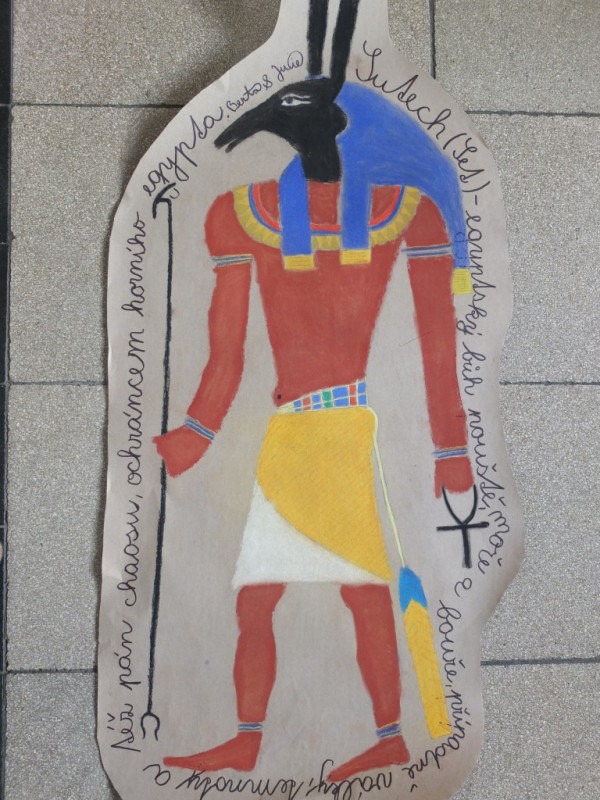 Sutech (Set) - egyptský bůh pouště, moře
a bouře, případně války, temnoty a
též pán chaosu, ochráncem horního egypta.
Berta & Julie